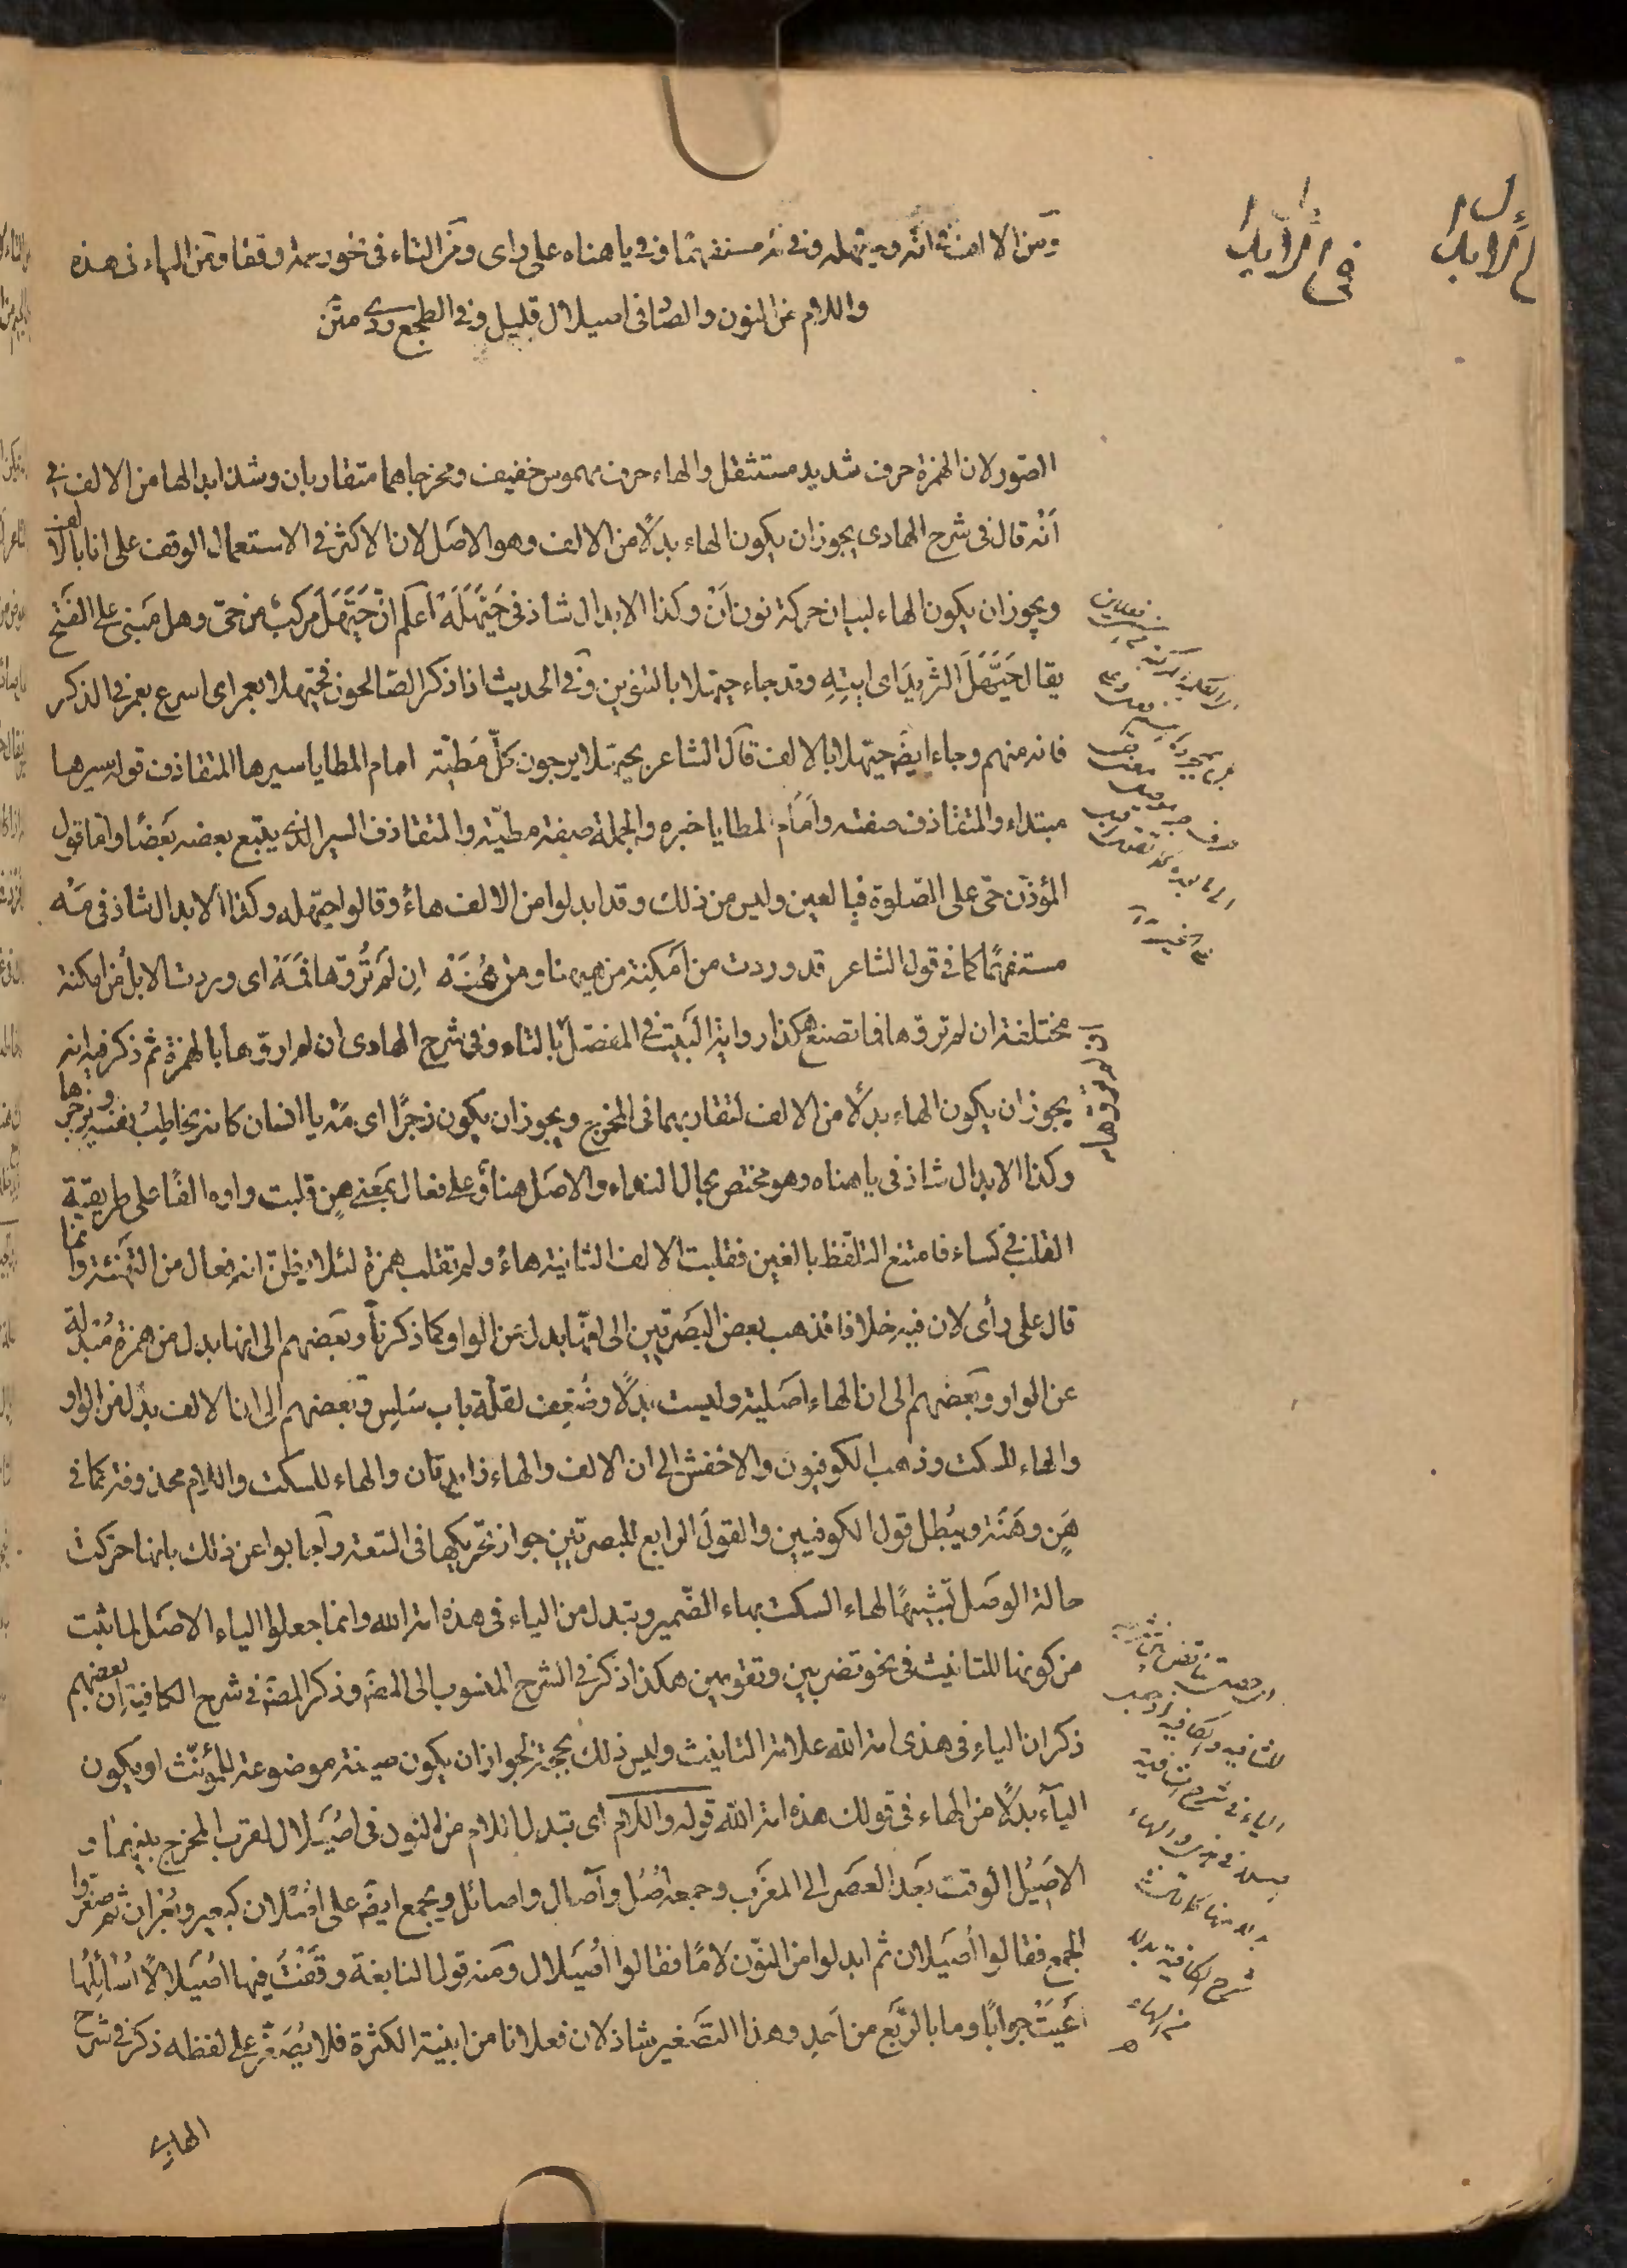 ومن الالف فى انّه وحيّهله وفى مه مستفهمًا وفى يا هناه على رأى ومن التاء فى نحو رحمة وقفا ومن الياء فى هذه
واللام من النون والضاد فى اصيلال قليل وفى الطجع ردى متن
الصور لان الهمزة حرف شديد مستثقل والهاء حرف مهموس خفيف ومخرجاهما متقاربان وشذ ابدالها من الالف فى
اَنَهْ قال فى شرح الهادى يجوز ان يكون الهاء بدلًا من الالف وهو الاصل لان الاكثر فى الاستعمال الوقف على انا بالالف
ويجوز ان يكون الهاء لبيان حركة نون اَنَ وكذا الابدال شاذ فى حَيَّهَلَهْ اعلم انّ حَيَّهَلَ مركب من حىّ وهل مبنى على الفتح
يقال حَيَّهَلَ الثريدَ اى ايتِهِ وقد جاء حيهلا بالتنوين وفى الحديث اذا ذكر الصالحون فحيّهلا بعمر اى اسرع بعمر فى الذكر
فانه منهم وجاء ايضًا حيّهلا بالالف قال الشاعر بحيّهلا يزجون كلّ مطيّة امام المطايا سيرها المتقاذف قوله سيرها
مبتداء والمتقاذف صفته وامام المطايا خبره والجملة صفة مطيّة والمتقاذف السير الذى يتبع بعضه بعضًا واما قول
المؤذّن حىّ على الصلوة فبالعين وليس من ذلك وقد ابدلوا من الالف هاءً وقالوا حيّهله وكذا الابدال شاذ فى مَهْ
مستفهمًا كما فى قول الشاعر قد وردت من اَمكِنة من ههنا ومن هُنَهْ اِن لم تُروّها فَمَهْ اى وردت الابلُ من امكنة
مختلفة ان لم تروّها فما تصنع هكذا رواية البيت فى المفصّل بالتاء وفى شرح الهادى ان لم اروّها بالهمزة ثم ذكر فيه انه
يجوز ان يكون الهاء بدلًا من الالف لتقاربهما فى المخرج ويجوز ان يكون زجرًا اى مَهْ يا انسان كانه يخاطب نفسه ويزجرها
وكذا الابدال شاذ فى يا هناه وهو مختص بحال النداء والاصل هناوٌ على فعال بمعنى هنٍ قلبت واوه الفًا على طريقة
القلب فى كساء فامتنع التلفّظ بالفين فقلبت الالف الثانية هاءً ولم تقلب همزة لئلا يظنّ انه فعال من التهنئة وانما
قال على رأى لان فيه خلافا فذهب بعض البصريّين الى انها بدل من الواو كما ذكرنا وبعضهم الى انها بدل من همزة مُبدلة
عن الواو وبعضهم الى ان الهاء اصلية وليست بدلًا وضُعِّف لقلّة باب سَلِس وبعضهم الى ان الالف بدل من الواو
والهاء للسكت وذهب الكوفيون والاخفش الى ان الالف والهاء زايدتان والهاء للسكت واللام محذوفة كما فى
هَنٍ وهَنَة ويُبطل قول الكوفيين والقول الرابع للبصريّين جواز تحريكها فى السّعة واجابوا عن ذلك بانها حركت
حالة الوصل تشبيهًا لهاء السكت بهاء الضمير وتبدل من الياء فى هذه امة الله وانما جعلوا الياء الاصل لما ثبت
من كونها للتانيث فى نحو تضربين وتقومين هكذا ذكر فى الشرح المنسوب الى المصنّف وذكر المصنّف فى شرح الكافية ان بعضهم
ذكر ان الياء فى هذى امة الله علامة التانيث وليس ذلك بحجة لجواز ان يكون صيغة موضوعة للمؤنّث او يكون
الياء بدلًا من الهاء فى قولك هذه امة الله قوله واللام اى تبدل اللام من النون فى اصيلال لقرب المخرج بينهما و
الاصيل الوقت بعد العصر الى المغرب وجمعه اُصُل وآصال واصائل ويجمع ايضًا على اُصلان كبعير وبُعران ثم صغّروا
الجمع فقالوا اُصَيلان ثم ابدلوا من النّون لامًا فقالوا اُصَيلال ومنه قول النابغة وقَفْتُ فيها اُصَيلالًا اُسائِلُها
اَعْيَتْ جوابًا وما بالرَّبع من احدِ وهذا التصغير شاذ لان فعلانا من ابنية الكثرة فلا يُصَغَّر على لفظه ذكر فى شرح
الهادى